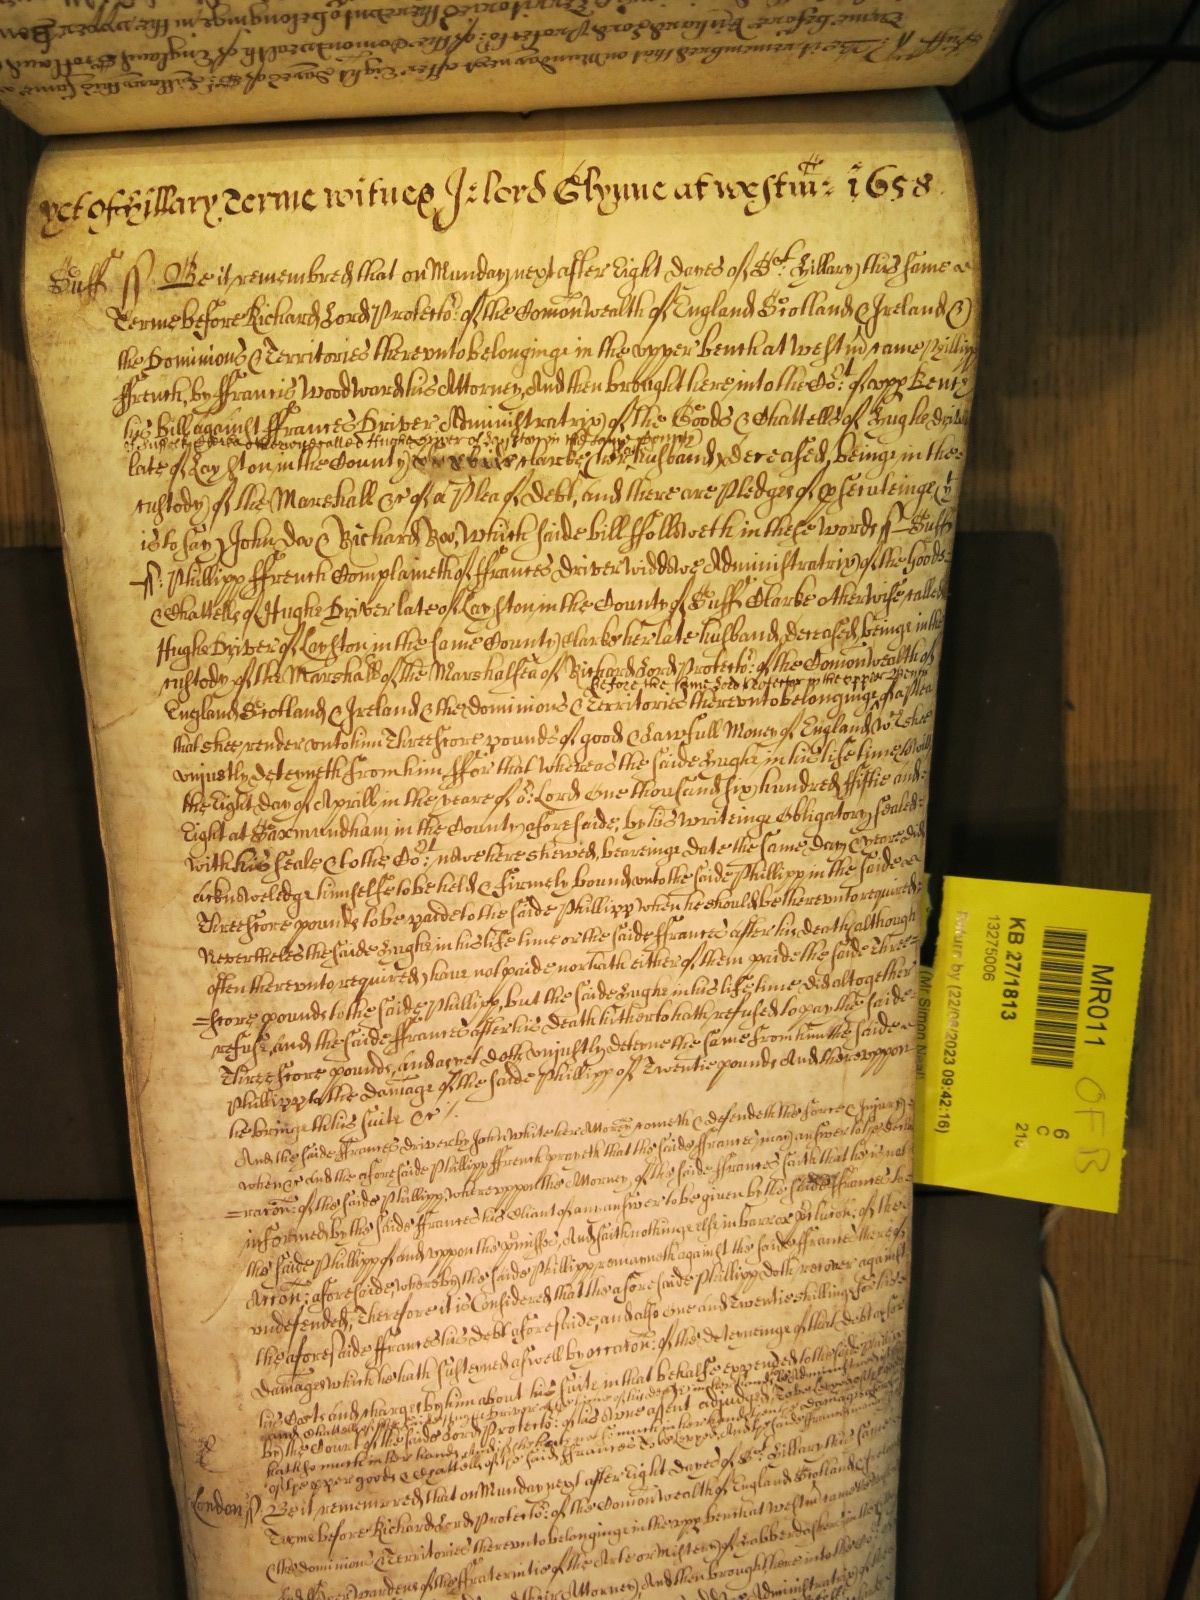 yet of Hillary Terme witnes J: lord Glynne at westm̄: 1658
Suff ss Be it remembred that on Munday next after Eight Dayes of St. Hillary this same
Terme before Richard Lord Protector: of the Comon Wealth of England Scotland & Ireland &
the Dominions & Territories therevnto belonginge in the vpper bench at Westm̄ came Phillipp
ffrench, by ffrancis Woodward his Attorney, And then brought here into the Cort: of vpp Bench
his bill against ffrances Driver Administratrix of the Goods & Chattells of Hughe Driver
late of Layston in the County Clarke her husband deceased, being in the
custody of the Marshall &c of a Plea of Debt, and there are Pledges of prosecuteinge yt
is to say John Doo & Richard Roo, Which saide bill ffolloweth in these words ss Suff
ss: Phillipp ffrench Complaineth of ffrances Driver widdowe Administratrix of the Goods
& Chattells of Hughe Driver late of Layston in the County of Suff Clarke otherwise called
Hughe Driver of Layston in the same County Clarke her late husband, deceased, beinge in the
custody of the Marshall of the Marshalsea of Richard Lord Protector: of the Comonwealth of
before the same Lord Protector in the vpper Bench
England Scotland & Ireland & the Dominions & Territories therevnto belonginge of a plea
that shee render vnto him Threescore pounds of good & Lawfull Money of England wch shee
vniustly deteyneth from him, ffor that Whereas the saide Hughe in his life time
the Eight day of Aprill in the yeare of or: Lord One thousand six hundred ffiftie and
Eight at Saxmundham in the County aforesaide, by his writeinge Obligatory sealed
with his Seale & to the Cort: nowe here shewed, beareinge date the same day & yeare did
acknowledge himselfe to be held & firmely bound vnto the saide Phillipp in the saide
Threescore pounds to be paide to the saide Phillipp when he should be therevnto required:
Neverthelesse the saide Hughe in his life time or the saide ffrances after his death, although
often therevnto required, haue not paide nor hath either of them paide the saide Three=
=score pounds to the saide Phillipp, but the saide Hughe in his life time did altogether
refuse, and the saide ffrances after his Death hitherto hath refused to pay the saide
Threescore pounds, and as yet doth vniustly deteine the same from him the saide
Phillipp to the damage of the saide Phillipp of Twentie pounds And therevppon
he bringeth his suite &c /.
And the saide ffrances Driver by John White her Attorney cometh & defendeth the force & Iniury
when &c And the aforesaide Phillipp ffrench prayeth that the saide ffrances may answer to the decla=
=racon: of the saide Phillipp, wherevppon the Attorney of the saide ffrances saith that he is not
informed by the saide ffrances his Client of any answer to be given by the saide ffrances to
the saide Phillipp of and vppon the premisses, And saith nothinge else in barre or preclucon: of the
Accon: aforesaide, whereby the saide Phillipp remayneth against the saide ffrances thereof
vndefended, Therefore it is Considered that the aforesaide Phillipp doth recover against
the aforesaide ffrances his Debt aforesaide, and also One and Twentie shillings for his
damages which he hath susteyned aswell by occacon: of the deteyneinge of that debt as for
his Costs and charges by him about his suite in that behalfe expended to the saide Phillipp
by the Court of the saide Lord Protector: of his owne assent adiudged, To be Levyed of the
of the proper goods & Chattells of the said ffrances to be Levyed, And the saide ffrances
London ss. Be it remembred that on Munday next after Eight Dayes of St. Hillary this same
Terme before Richard Lord Protector: of the Comon Wealth of England Scotland & Ireland
& the dominions & Territories therevnto belonginge in the vpp bench at Westm̄ came
Wardens of the ffraternitie of the Arte or Mistery of Habberdashers in the
Attorney, And then brought here into the
Administratrix of the
MR011
KB 27/1813
13275006
6
C
OFB
(Mr Simon Neal)
Return by (22/06/2023 09:42:16)